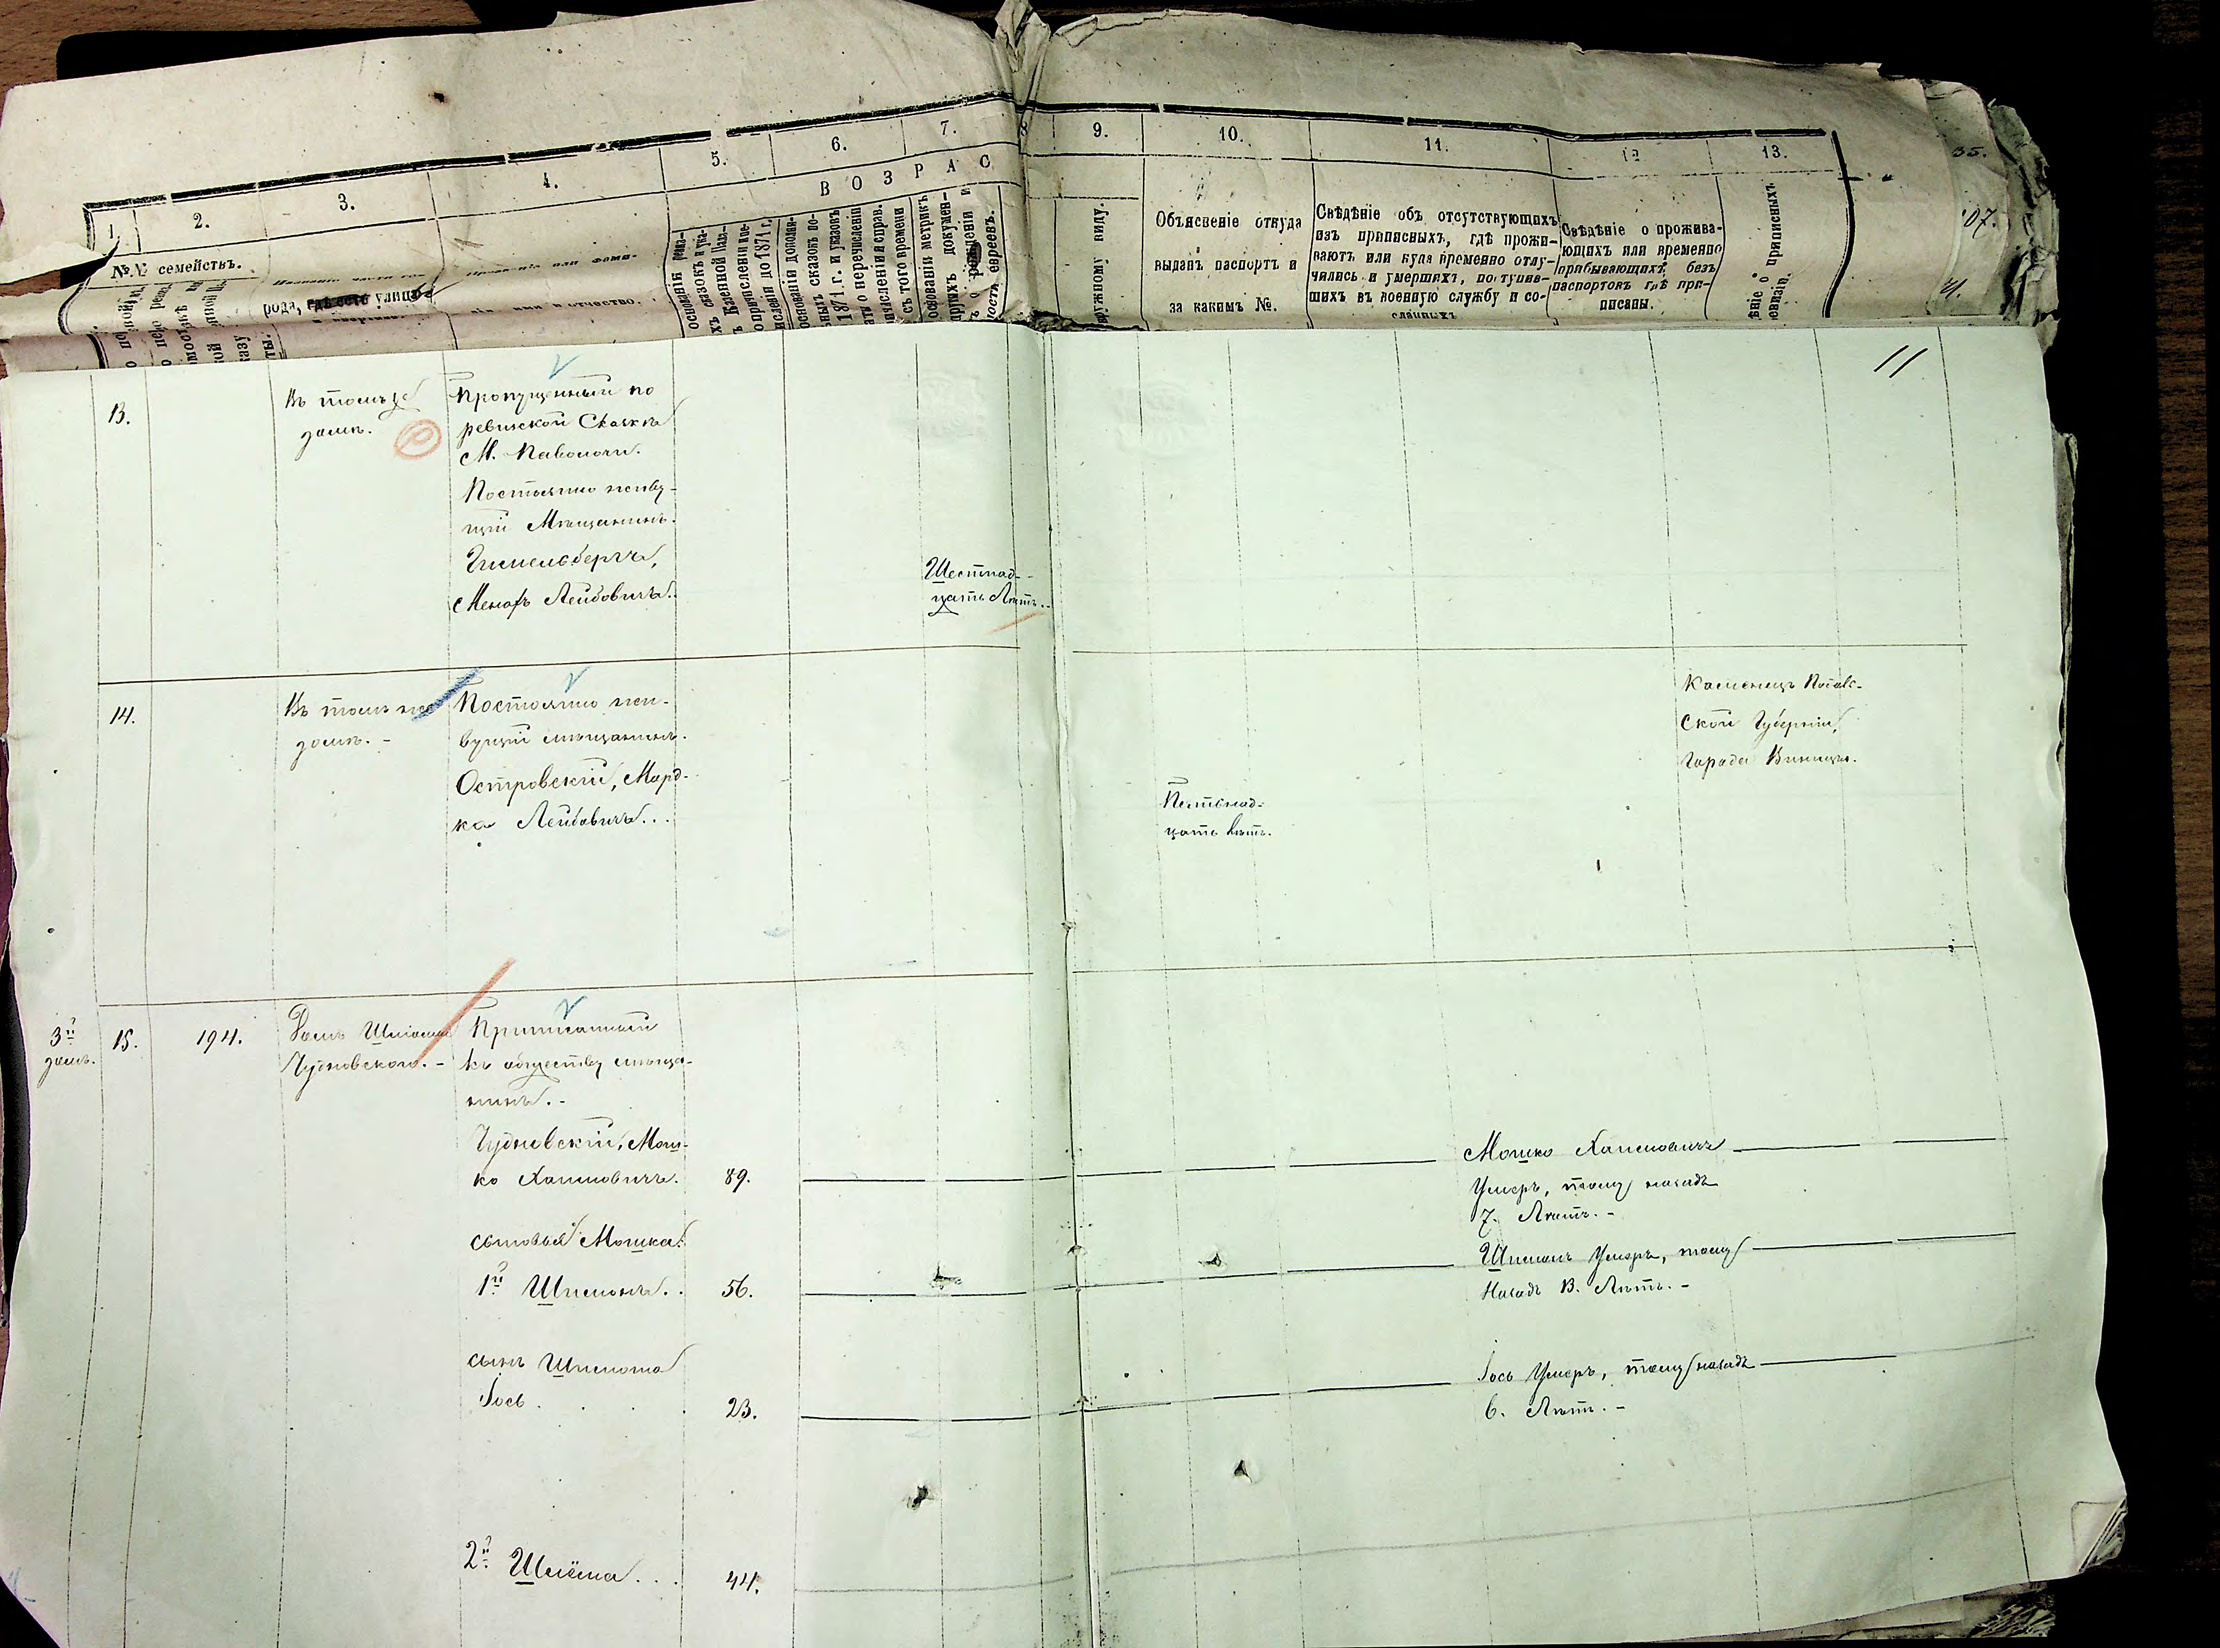 1. 2. 3. 4. 5. 6. 7. 8 9. 10. 11. 12 13.
35.
В О З Р А С
107.
№№ семействъ.
рода, гдѣ есть улицъ
нія имя и отчество.
Объясненіе откуда
выданъ паспортъ и
за какимъ №.
Свѣдѣніе объ отсутствующихъ
изъ приписныхъ, гдѣ прожи-
ваютъ или куда временно отлу-
чились и умершихъ, поступив-
шихъ въ военную службу и со-
сланныхъ
Свѣдѣніе о прожива-
ющихъ или временно
прибывающихъ, безъ
паспортовъ гдѣ при-
писаны.
наружному виду.
11
13.
Въ томъ же
домѣ.
Пропущенный по
ревизской Сказкѣ
М. Паволочи.
Постоянно живу-
щій Мѣщанинъ.
Гимельбергъ,
Лейбовичъ.
Шестнад-
цать Лѣтъ.
14.
Въ томъ же
домѣ. -
Постоянно жи-
вущій мѣщанинъ.
Островскій, Мард-
ко Лейбовичъ...
Пятьнад-
цать лѣтъ.
Каменецъ Подоль-
ской Губерніи,
Города Виницы.
3й
домъ.
15.
194.
Домъ Шлiомы
Чудновскаго. -
Приписанный
къ обществу мѣща-
нинъ. -
Чудновскій, Мош-
ко Хаимовичъ. 89.
Мошко Хаимовичъ
Умеръ, тому назадъ
7. Лѣтъ. -
сыновья Мошка:
1й Шимонъ. . 56.
Шимонъ Умеръ, тому
Назадъ 13. Лѣтъ. -
сынъ Шимона
Iось . . . 23.
Iось Умеръ, тому назадъ
6. Лѣтъ. -
2й Шлёма . . . 44.